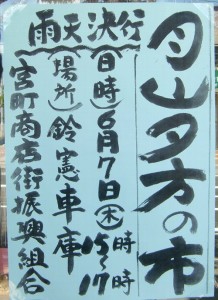 月山夕方の市
雨天決行
(日時)6月7日(木)15時〜17時
(場所)鈴憲車庫
宮町商店街振興組合